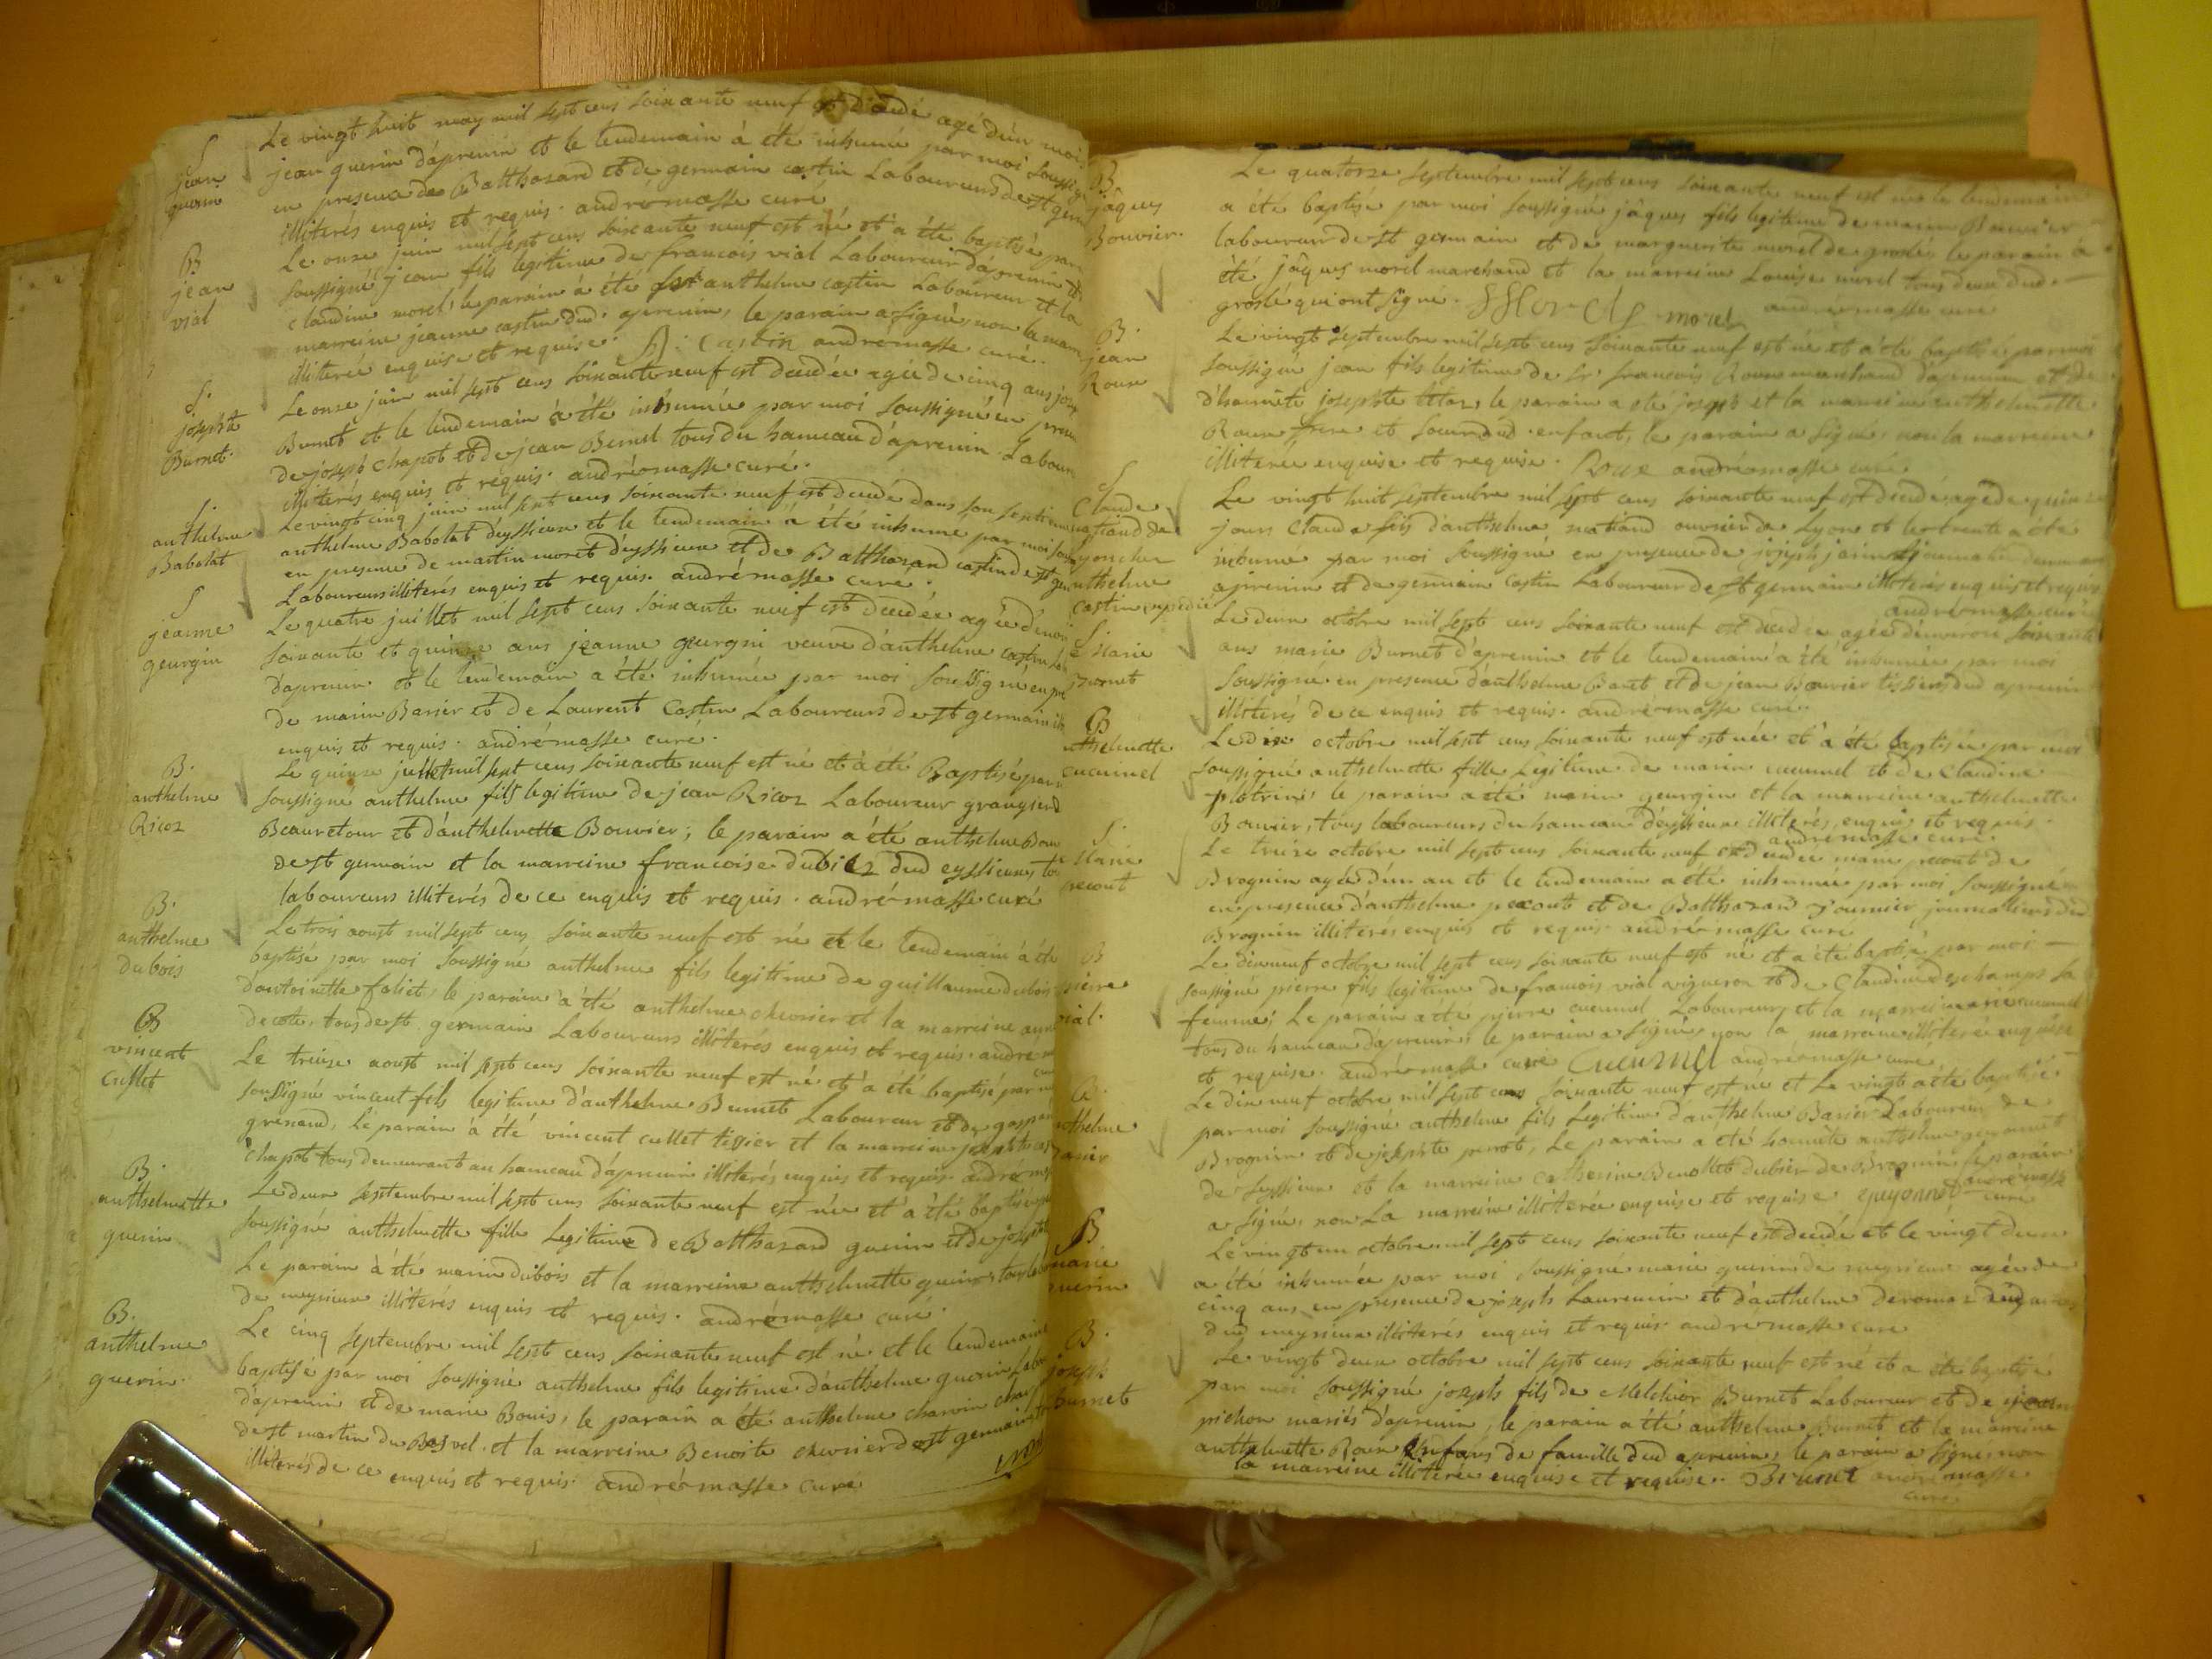 Le vingt huit may mil sept cens soixante neuf est decedé agé d'un mois
S
jean
guerin
jean guerin d'aprenin et le lendemain à été inhumé par moi soussigné
en presence de Balthazard et de germain castin Laboureurs de st germ
illiterés enquis et requis. andré masse curé
B
jean
vial
Le onze juin mil sept cens soixante neuf est né et a été baptisé par
soussigné jean fils legitime de francois vial Laboureur d'aprenin et
claudine morel, le parain a été anthelme castin Laboureur et la
marreine jeanne castin dud. aprenin, le parain a signé, non la marr
illiterée enquise et requise. A: Castin andré masse curé.
S.
josephte
Burnet.
Le onze juin mil sept cens soixante neuf est decedée agée de cinq ans jos
Burnet et le lendemain à été inhumée par moi soussigné en presen
de joseph chapot et de jean Bernel tous du hameau d'aprenin Labour
illiterés enquis et requis. andré masse curé.
S.
anthelme
Babolat
Le vingt cinq juin mil sept cens soixante neuf est decedé dans son
anthelme Babolat d'eyssieux et le lendemain à été inhumé par moi sous
en presence de martin moret d'eyssieux et de Balthazard castin de st ger
Laboureurs illiterés enquis et requis. andré masse curé.
S
jeanne
georgin
Le quatre juillet mil sept cens soixante neuf est decedée agée d'envir
soixante et quinze ans jeanne georgin veuve d'anthelme castin
d'aprenin et le lendemain a été inhumée par moi soussigné en pre
de marin Barier et de Laurent Castin Laboureurs de st germain ill
enquis et requis. andré masse curé.
B.
anthelme
Ricoz
Le quinze juillet mil sept cens soixante neuf est né et à été Baptisé par
soussigné anthelme fils legitime de jean Ricoz Laboureur grangier d
Beauretour et d'anthelmette Bouvier; le parain a été anthelme Bou
de st germain et la marreine francoise dubiez dud eyssieux, to
laboureurs illiterés de ce enquis et requis. andré masse curé
B.
anthelme
dubois
Le trois aoust mil sept cens soixante neuf est né et le lendemain à été
baptisé par moi soussigné anthelme fils legitime de guillaume dubois
d'antoinette foliet, le parain a été anthelme chevrier et la marreine
decote, tous de st germain Laboureurs illiterés enquis et requis. andré m
B
vincent
cullet
Le treize aoust mil sept cens soixante neuf est né et à été baptisé par m
soussigné vincent fils legitime d'anthelme Burnet Laboureur et de gaspar
grenand, le parain à été vincent cullet tissier et la marreine josephte
chapot tous demeurant au hameau d'aprenin illiterés enquis et requis andré m
B.
anthelmette
guerin
Le deux septembre mil sept cens soixante neuf est née et à été baptisée
soussigné anthelmette fille Legitime de Balthazard guerin et de josephte
Le parain à été marin dubois et la marreine anthelmette guerin, tous
de meyrieux illiterés enquis et requis. andré masse curé.
B.
anthelme
guerin.
Le cinq septembre mil sept cens soixante neuf est né et le lendemain
baptisé par moi soussigné anthelme fils legitime d'anthelme guerin Labou
d'aprenin et de marie Bonis, le parain a été anthelme charvin
de st martin du Basvel et la marreine Benoite chevrier de st germain
illiterés de ce enquis et requis. andré masse curé
B
jâques
Bouvier.
Le quatorze septembre mil sept cens soixante neuf est né et le lendemain
a été baptisé par moi soussigné jâques fils legitime de marin Bouvier
laboureur de st germain et de marguerite morel de groslé, le parain à
été jâques morel marchand et la marreine Louise morel tous deux dud.
groslé qui ont signé. Morel morel andré masse curé
B.
jean
Roux
Le vingt septembre mil sept cens soixante neuf est né et a été baptisé par moi
soussigné jean fils legitime de sr francois Roux marchand d'aprenin et de
d'honnête josephte le parain a été joseph et la marreine anthelmette
Roux frere et soeur dud. enfant, le parain a signé, non la marreine
illiterée enquise et requise. Roux andré masse curé.
S
Claude
natiand de
Lyon chez
anthelme
castin
Le vingt huit septembre mil sept cens soixante neuf est decedé agé de quinze
jours claude fils d'anthelme natiand ouvrier de Lyon et le trente a été
inhumé par moi soussigné en presence de joseph journalier demeurant
aprenin et de germain castin Laboureur de st germain illiterés enquis et requis
andré masse curé
S.
Marie
Burnet
Le deux octobre mil sept cens soixante neuf est decedée agée d'environ soixante
ans marie Burnet d'aprenin et le lendemain a été inhumée par moi
soussigné en presence d'anthelme Bant et de jean Bouvier tissiers dud aprenin
illiterés de ce enquis et requis. andré masse curé.
B
anthelmette
cucumel
Le dix octobre mil sept cens soixante neuf est née et a été baptisée par moi
soussigné anthelmette fille Legitime de marin cucumel et de claudine
le parain a été marin georgin et la marreine anthelmette
Bouvier, tous laboureurs du hameau d'eyssieux illiterés, enquis et requis.
andré masse curé.
S.
Marie
pecout
Le treize octobre mil sept cens soixante neuf est decedée marie pecout de
Brognin agée d'un an et le lendemain a été inhumée par moi soussigné
en presence d'anthelme pecout et de Balthazard fournier journaliers dud
Brognin illiterés enquis et requis. andré masse curé
B
pierre
vial.
Le dix neuf octobre mil sept cens soixante neuf est né et a été baptisé par moi
soussigné pierre fils legitime de francois vial vigneron et de Claudine deschamps sa
femme; Le parain a été pierre cucumel Laboureur, et la marreine marie cucumel
tous du hameau d'aprenin, le parain a signé, non la marreine illiterée enquise
et requise. andré masse curé Cucumel andré masse curé
B.
anthelme
Barier
Le dix neuf octobre mil sept cens soixante neuf est né et le vingt a été baptisé
par moi soussigné anthelme fils Legitime d'anthelme Barier Laboureur de
Brognin et de josephte perrot, Le parain a été honnête anthelme guyonnet
de seyssieux et la marreine catherine Benoîte dubier de Brognin, le parain
a signé, non La marreine illiterée enquise et requise. guyonnet andré masse
curé
B
marie
guerin
Le vingt un octobre mil sept cens soixante neuf est decedée et le vingt deux
a été inhumée par moi soussigné marie guerin de meyrieux agée de
cinq ans en presence de joseph Laurencin et d'anthelme deromaz
dud meyrieux illiterés enquis et requis. andré masse curé
B.
joseph
burnet
Le vingt deux octobre mil sept cens soixante neuf est né et a été baptisé
par moi soussigné joseph fils de Melchior Burnet Laboureur et de jean
pichon mariés d'aprenin, le parain a été anthelme Burnet et la marreine
anthelmette Roux Enfans de famille dud aprenin, le parain a signé, non
la marreine illiterée enquise et requise. Burnet andré masse
curé.